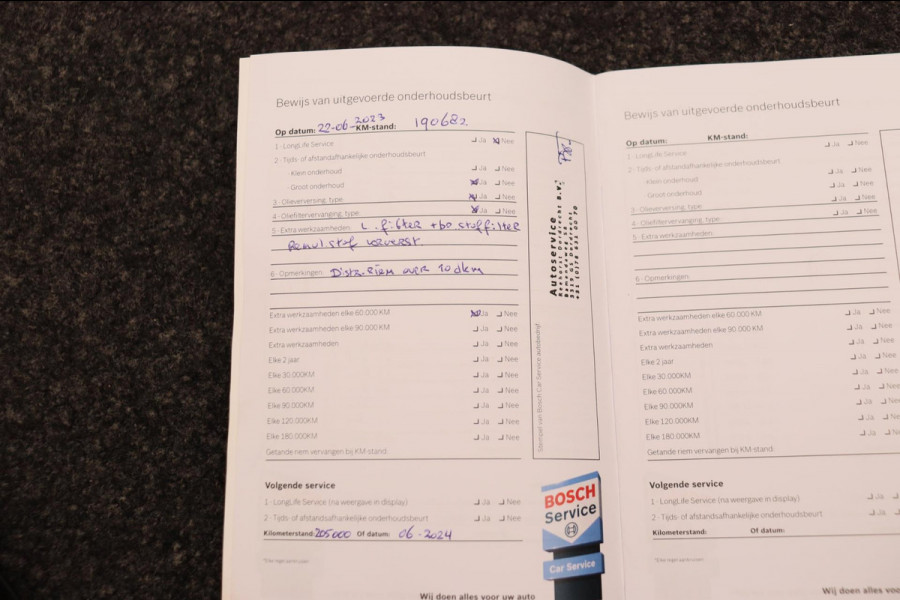 Bewijs van uitgevoerde onderhoudsbeurt
Op datum: 22-06-2023 KM-stand: 190682
1 - LongLife Service Ja Nee
2 - Tijds- of afstandafhankelijke onderhoudsbeurt
- Klein onderhoud Ja Nee
- Groot onderhoud Ja Nee
3 - Olieverversing, type: Ja Nee
4 - Oliefiltervervanging, type: Ja Nee
5 - Extra werkzaamheden: L. filter + stoffilter
Remvlstof ververst
6 - Opmerkingen: Distr. Riem over 10dkm
Extra werkzaamheden elke 60.000 KM Ja Nee
Extra werkzaamheden elke 90.000 KM Ja Nee
Extra werkzaamheden Ja Nee
Elke 2 jaar Ja Nee
Elke 30.000KM Ja Nee
Elke 60.000KM Ja Nee
Elke 90.000KM Ja Nee
Elke 120.000KM Ja Nee
Elke 180.000KM Ja Nee
Getande riem vervangen bij KM-stand:
Autoservice
Stempel van Bosch Car Service autobedrijf
Volgende service
1 - LongLife Service (na weergave in display) Ja Nee
2 - Tijds- of afstandsafhankelijke onderhoudsbeurt Ja Nee
Kilometerstand: 205000 Of datum: 06-2024
BOSCH
Service
Car Service
Wij doen alles voor uw auto
Bewijs van uitgevoerde onderhoudsbeurt
Op datum: KM-stand:
1 - LongLife Service Ja Nee
2 - Tijds- of afstandafhankelijke onderhoudsbeurt
- Klein onderhoud Ja Nee
- Groot onderhoud Ja Nee
3 - Olieverversing, type: Ja Nee
4 - Oliefiltervervanging, type: Ja Nee
5 - Extra werkzaamheden:
6 - Opmerkingen:
Extra werkzaamheden elke 60.000 KM Ja Nee
Extra werkzaamheden elke 90.000 KM Ja Nee
Extra werkzaamheden Ja Nee
Elke 2 jaar Ja Nee
Elke 30.000KM Ja Nee
Elke 60.000KM Ja Nee
Elke 90.000KM Ja Nee
Elke 120.000KM Ja Nee
Elke 180.000KM Ja
Getande riem vervangen bij KM-stand:
Volgende service
1 - LongLife Service (na weergave in display) Ja
2 - Tijds- of afstandsafhankelijke onderhoudsbeurt Ja
Kilometerstand: Of datum:
Wij doen alles vo